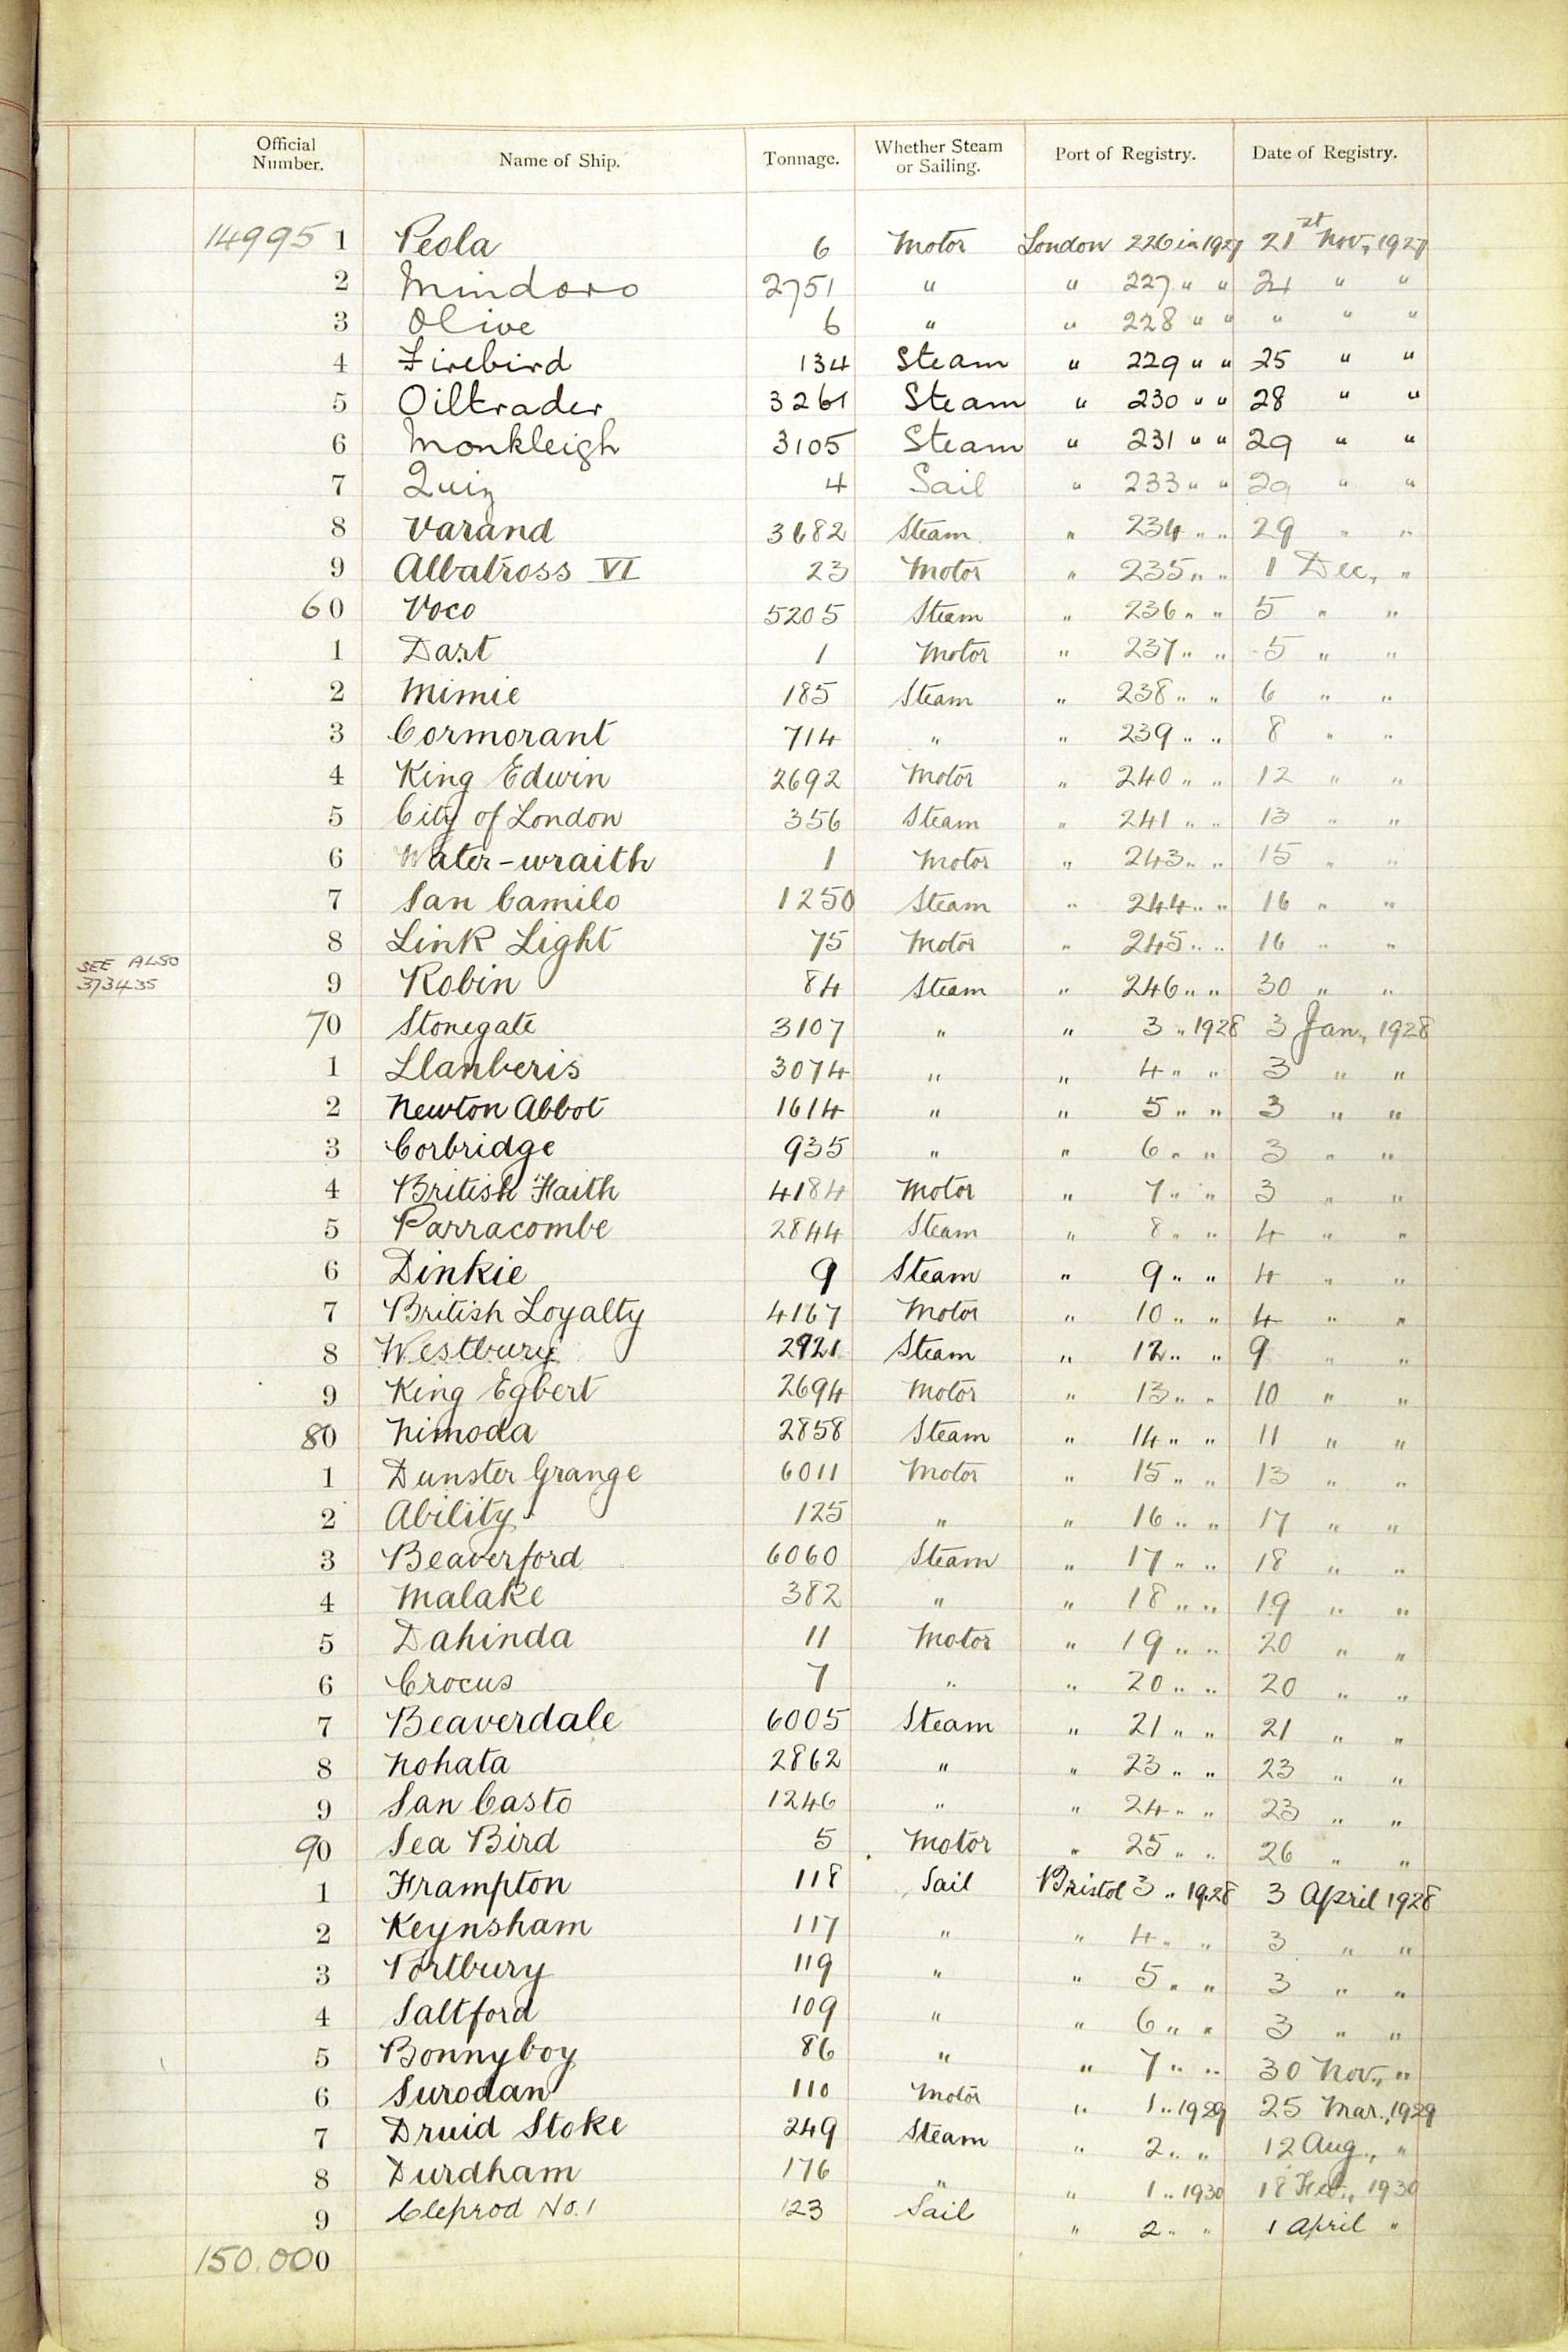 Official Number. Name of Ship. Tonnage. Whether Steam or Sailing. Port of Registry. Date of Registry.
149951 Peola 6 Motor London 226 in 1927 21st Nov., 1927
2 Mindoro 2751 " " 227 " " 24 " "
3 Olive 6 " " 228 " " " " "
4 Firebird 134 Steam " 229 " " 25 " "
5 Oiltrader 3261 Steam " 230 " " 28 " "
6 Monkleigh 3105 Steam " 231 " " 29 " "
7 Quiz 4 Sail " 233 " " 29 " "
8 Varand 3682 Steam " 234 " " 29 " "
9 Albatross VI 23 Motor " 235 " " 1 Dec., "
60 Voco 5205 Steam " 236 " " 5 " "
1 Dart 1 Motor " 237 " " 5 " "
2 Mimie 185 Steam " 238 " " 6 " "
3 Cormorant 714 " " 239 " " 8 " "
4 King Edwin 2692 Motor " 240 " " 12 " "
5 City of London 356 Steam " 241 " " 13 " "
6 Water-wraith 1 Motor " 243 " " 15 " "
7 San Camilo 1250 Steam " 244 " " 16 " "
8 Link Light 75 Motor " 245 " " 16 " "
SEE ALSO
373435
9 Robin 84 Steam " 246 " " 30 " "
70 Stonegate 3107 " " 3 " 1928 3 Jan., 1928
1 Llanberis 3074 " " 4 " " 3 " "
2 Newton Abbot 1614 " " 5 " " 3 " "
3 Corbridge 935 " " 6 " " 3 " "
4 British Faith 4184 Motor " 7 " " 3 " "
5 Parracombe 2844 Steam " 8 " " 4 " "
6 Dinkie 9 Steam " 9 " " 4 " "
7 British Loyalty 4167 Motor " 10 " " 4 " "
8 Westbury 2921 Steam " 12 " " 9 " "
9 King Egbert 2694 Motor " 13 " " 10 " "
80 Nimoda 2858 Steam " 14 " " 11 " "
1 Dunster Grange 6011 Motor " 15 " " 13 " "
2 Ability 125 " " 16 " " 17 " "
3 Beaverford 6060 Steam " 17 " " 18 " "
4 Malake 382 " " 18 " " 19 " "
5 Dahinda 11 Motor " 19 " " 20 " "
6 Crocus 7 " " 20 " " 20 " "
7 Beaverdale 6005 Steam " 21 " " 21 " "
8 Nohata 2862 " " 23 " " 23 " "
9 San Casto 1246 " " 24 " " 23 " "
90 Sea Bird 5 Motor " 25 " " 26 " "
1 Frampton 118 Sail Bristol 3 " 1928 3 April 1928
2 Keynsham 117 " " 4 " " 3 " "
3 Portbury 119 " " 5 " " 3 " "
4 Saltford 109 " " 6 " " 3 " "
5 Bonnyboy 86 " " 7 " " 30 Nov., "
6 Surodan 110 Motor " 1 " 1929 25 Mar., 1929
7 Druid Stoke 249 Steam " 2 " " 12 Aug., "
8 Durdham 176 " " 1 " 1930 18 Feb., 1930
9 Cleprod No. 1 123 Sail " 2 " " 1 April "
150.000